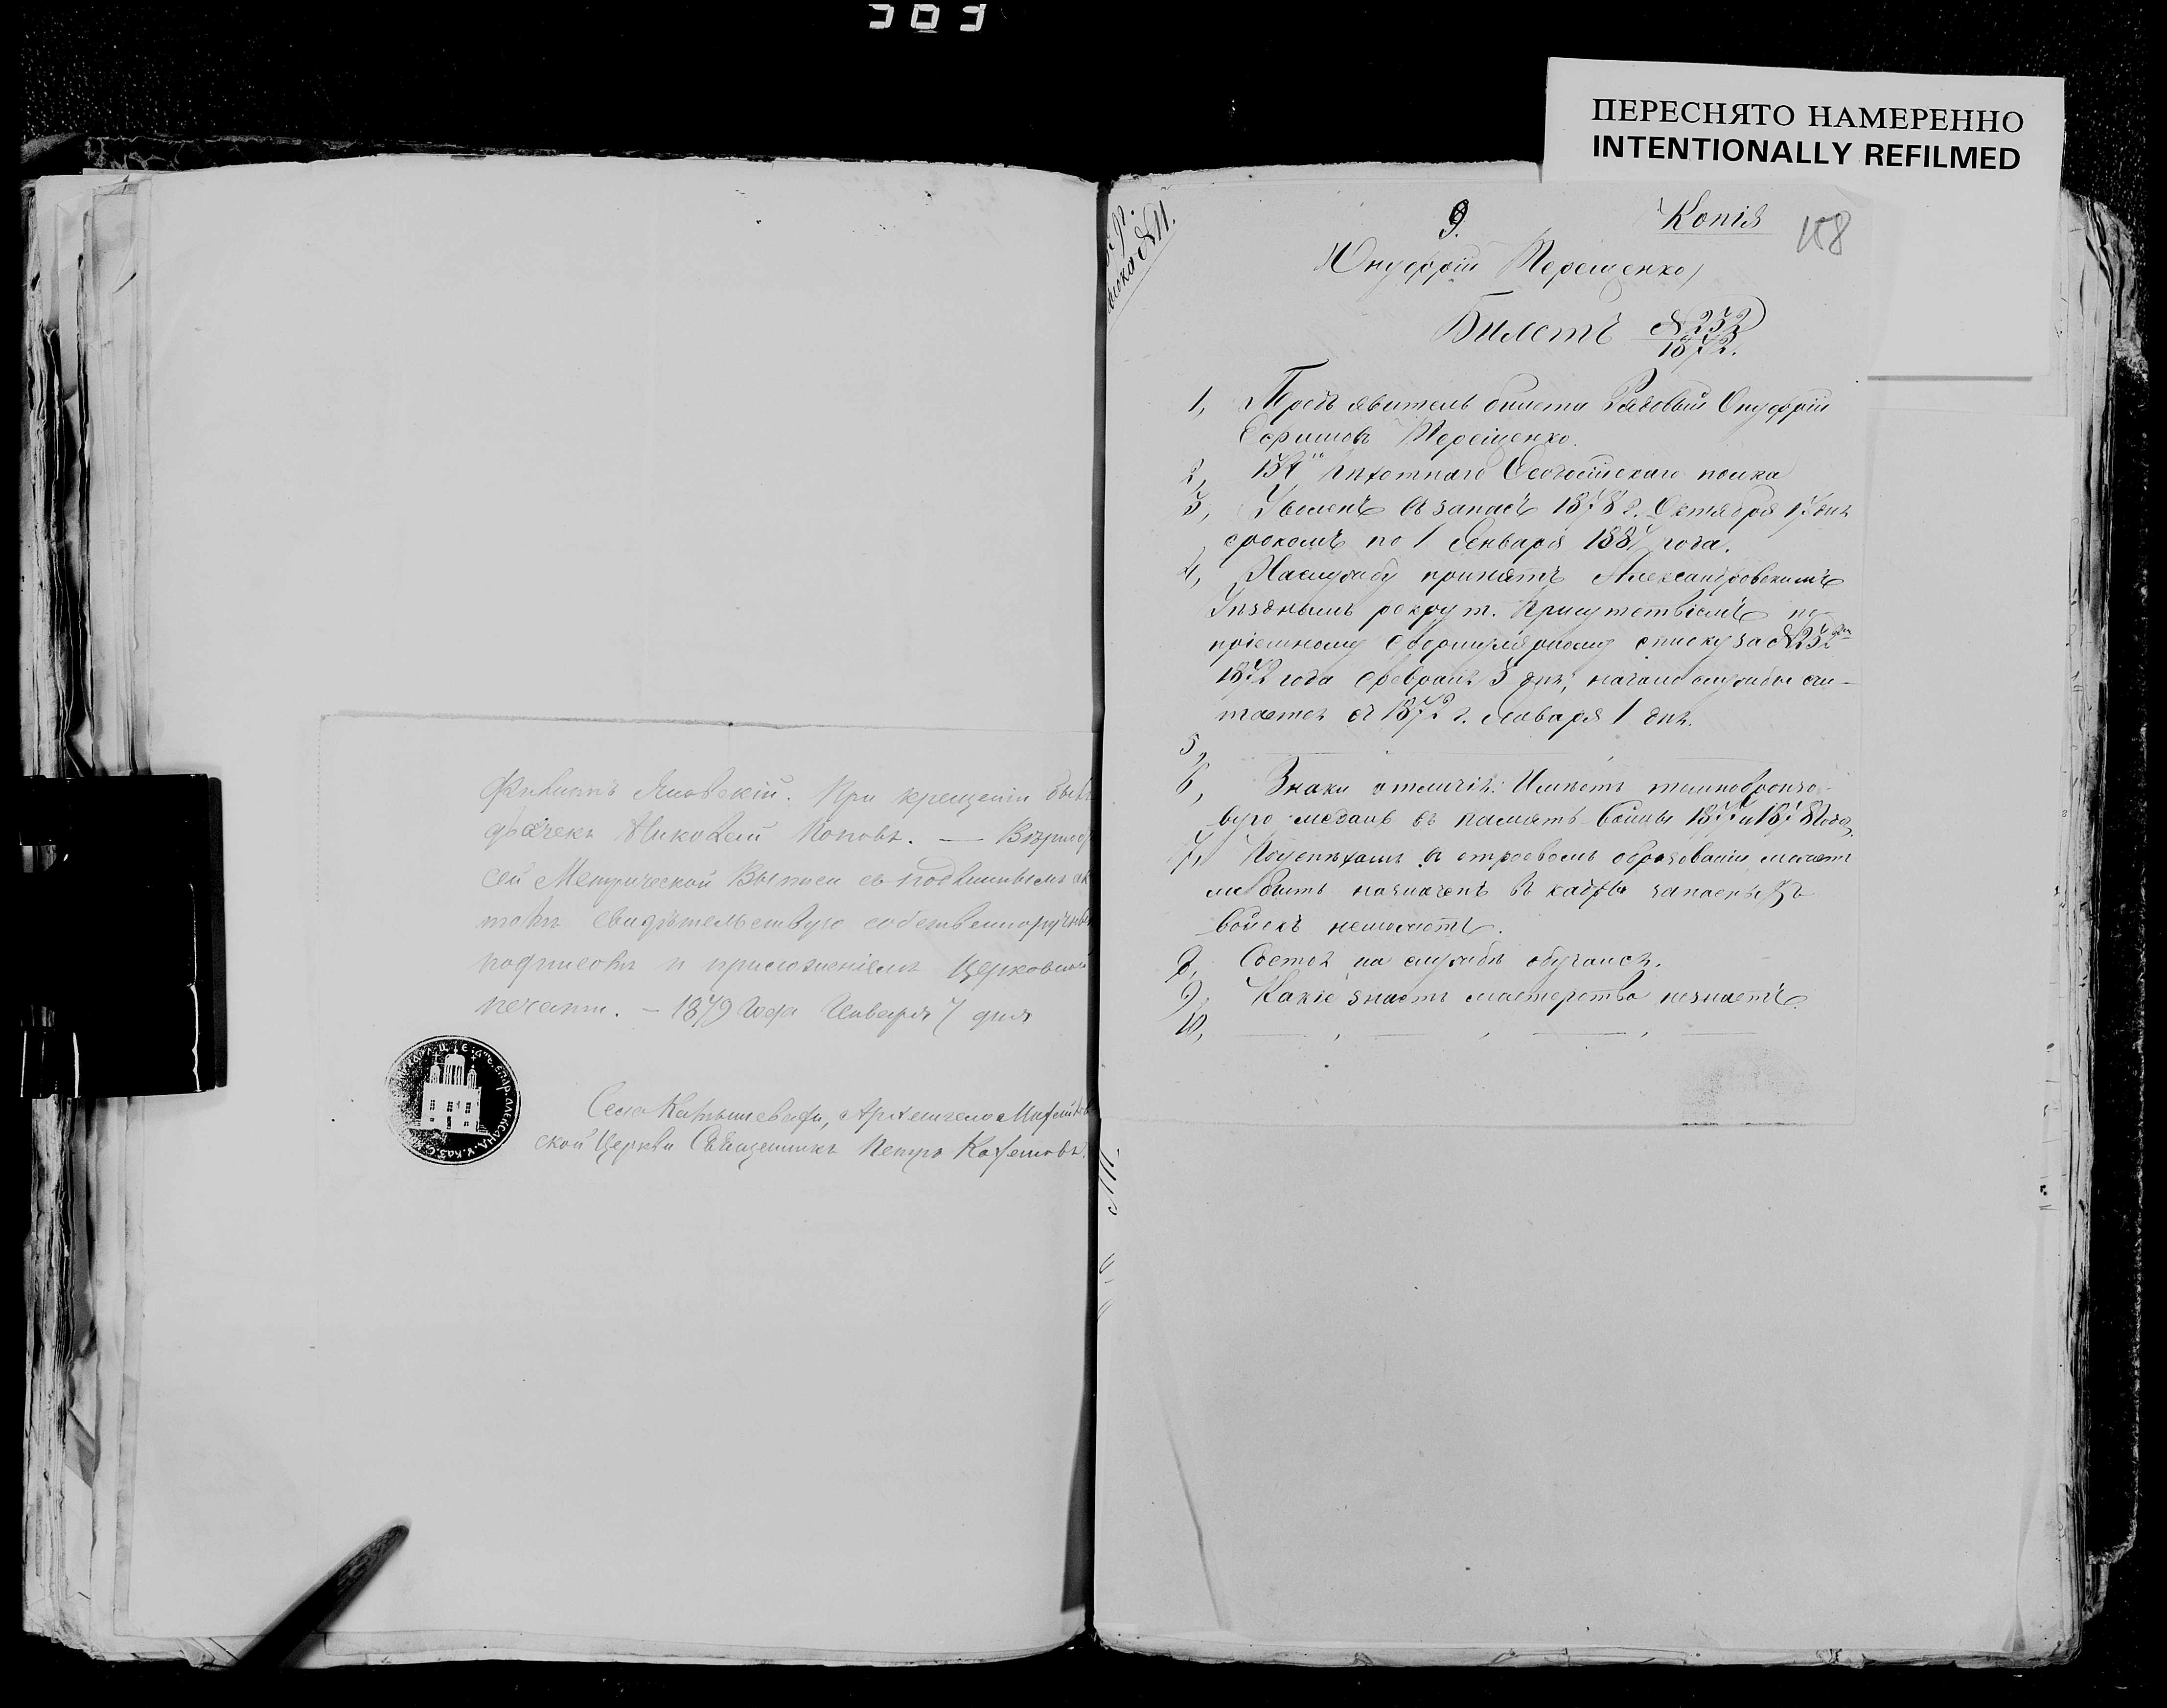 303
ПЕРЕСНЯТО НАМЕРЕННО
INTENTIONALLY REFILMED
Яновскій. При крещеніи былъ
дьячекъ Николай Поповъ. — Въ
сей Метрической Выписи съ подлиннымъ ак
томъ свидѣтельствую собственноручнымъ
подписомъ и приложеніемъ Церковной
печати. – 1879 года Января 7 дня
Села Архангело Михайлов
ской Церкви Священникъ Петръ
9. Копія
108
(Онуфрій Терещенко)
Билетъ №232
1872.
1, Предъявитель билета Рядовый Онуфрій
Ефимовъ Терещенко.
2, 134го пѣхотнаго Ѳеодосійскаго полка
3, Уволенъ въ запасъ 1878 г. Октября 17 дня
срокомъ по 1 Января 1887 года.
4, На службу принятъ Александровскимъ
Уѣзднымъ рекрут. Присутствіемъ по
пріемному формулярному списку за №232
1872 года Февраля 3 дня, начало службы счи-
тается съ 1872 г. Января 1 дня.
5,
6, Знаки отличія: Имѣетъ темнобронзо-
вую медаль въ память Войны 1877 и 1878 года.
7, По успѣхамъ въ строевомъ образованіи можетъ
ли быть назначенъ въ кадры запасныхъ
войскъ неможетъ.
8, на службѣ обучался.
9, Какіе знаетъ мастерства незнаетъ.
10,